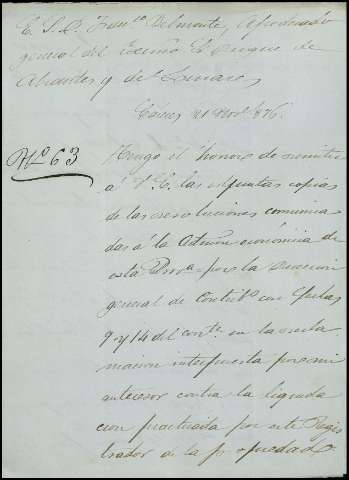 E. S. D. Franco. Delmonte, Apoderado
general del Excmo. Sr. Duque de
Abrantes y de Linares
Cáceres 21 Novbre. 876.
No. 63
Tengo el honor de remitir
á V. E. las adjuntas copias
de las resoluciones comunica
das á la Admon. económica de
esta Prova. por la Direccion
general de Contribs. con fechas
9 y 14 del corte. en la recla
macion interpuesta por mi
antecesor contra la liquida
cion practicada por este Regis
trador de la propiedad